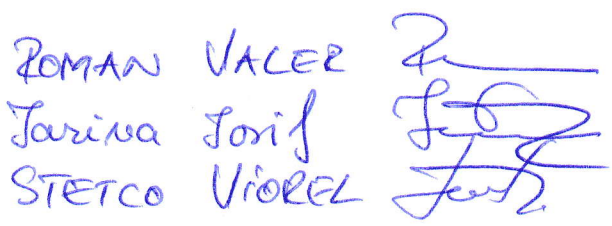 ROMAN VALER
Jarina Iosif
STETCO VIOREL